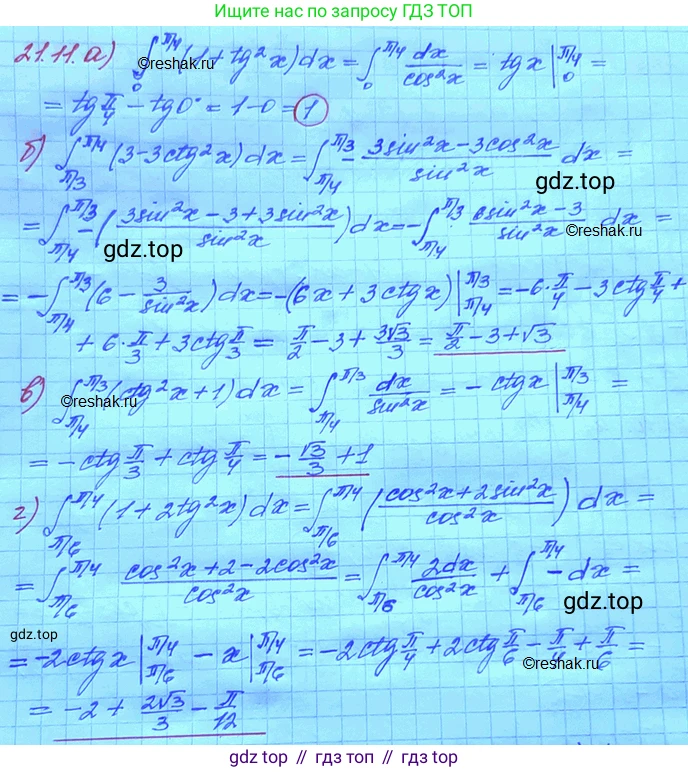 Ищите нас по запросу ГДЗ ТОП
21.11. а) ∫₀^π/4 (1 + tg²x) dx = ∫₀^π/4 dx/cos²x = tg x |₀^π/4 =
= tg π/4 − tg 0 = 1 − 0 = 1
©reshak.ru
©reshak.ru
б) ∫_π/3^π/4 (3 − 3ctg²x) dx = ∫_π/4^π/3 − (3sin²x − 3cos²x)/sin²x dx =
gdz.top
= ∫_π/4^π/3 −((3sin²x − 3 + 3sin²x)/sin²x) dx = −∫_π/4^π/3 (6sin²x − 3)/sin²x dx =
gdz.top
©reshak.ru
= −∫_π/4^π/3 (6 − 3/sin²x) dx = −(6x + 3ctg x) |_π/4^π/3 = −6·π/4 − 3ctg π/4 +
+ 6·π/3 + 3ctg π/3 = π/2 − 3 + 3√3/3 = π/2 − 3 + √3
в) ∫_π/4^π/3 (ctg²x + 1) dx = ∫_π/4^π/3 dx/sin²x = −ctg x |_π/4^π/3 =
©reshak.ru
= −ctg π/3 + ctg π/4 = −√3/3 + 1
г) ∫_π/6^π/4 (1 + 2tg²x) dx = ∫_π/6^π/4 ((cos²x + 2sin²x)/cos²x) dx =
= ∫_π/6^π/4 (cos²x + 2 − 2cos²x)/cos²x = ∫_π/6^π/4 2dx/cos²x + ∫_π/6^π/4 − dx =
gdz.top
gdz.top
= −2ctg x |_π/6^π/4 − x |_π/6^π/4 = −2ctg π/4 + 2ctg π/6 − π/4 + π/6 =
©reshak.ru
= −2 + 2√3/3 − π/12
gdz top // гдз топ // gdz.top